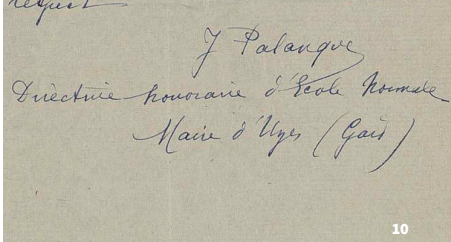 respect
J Palanque
Directrice honoraire d'Ecole Normale
Maire d'Uzès (Gard)
10